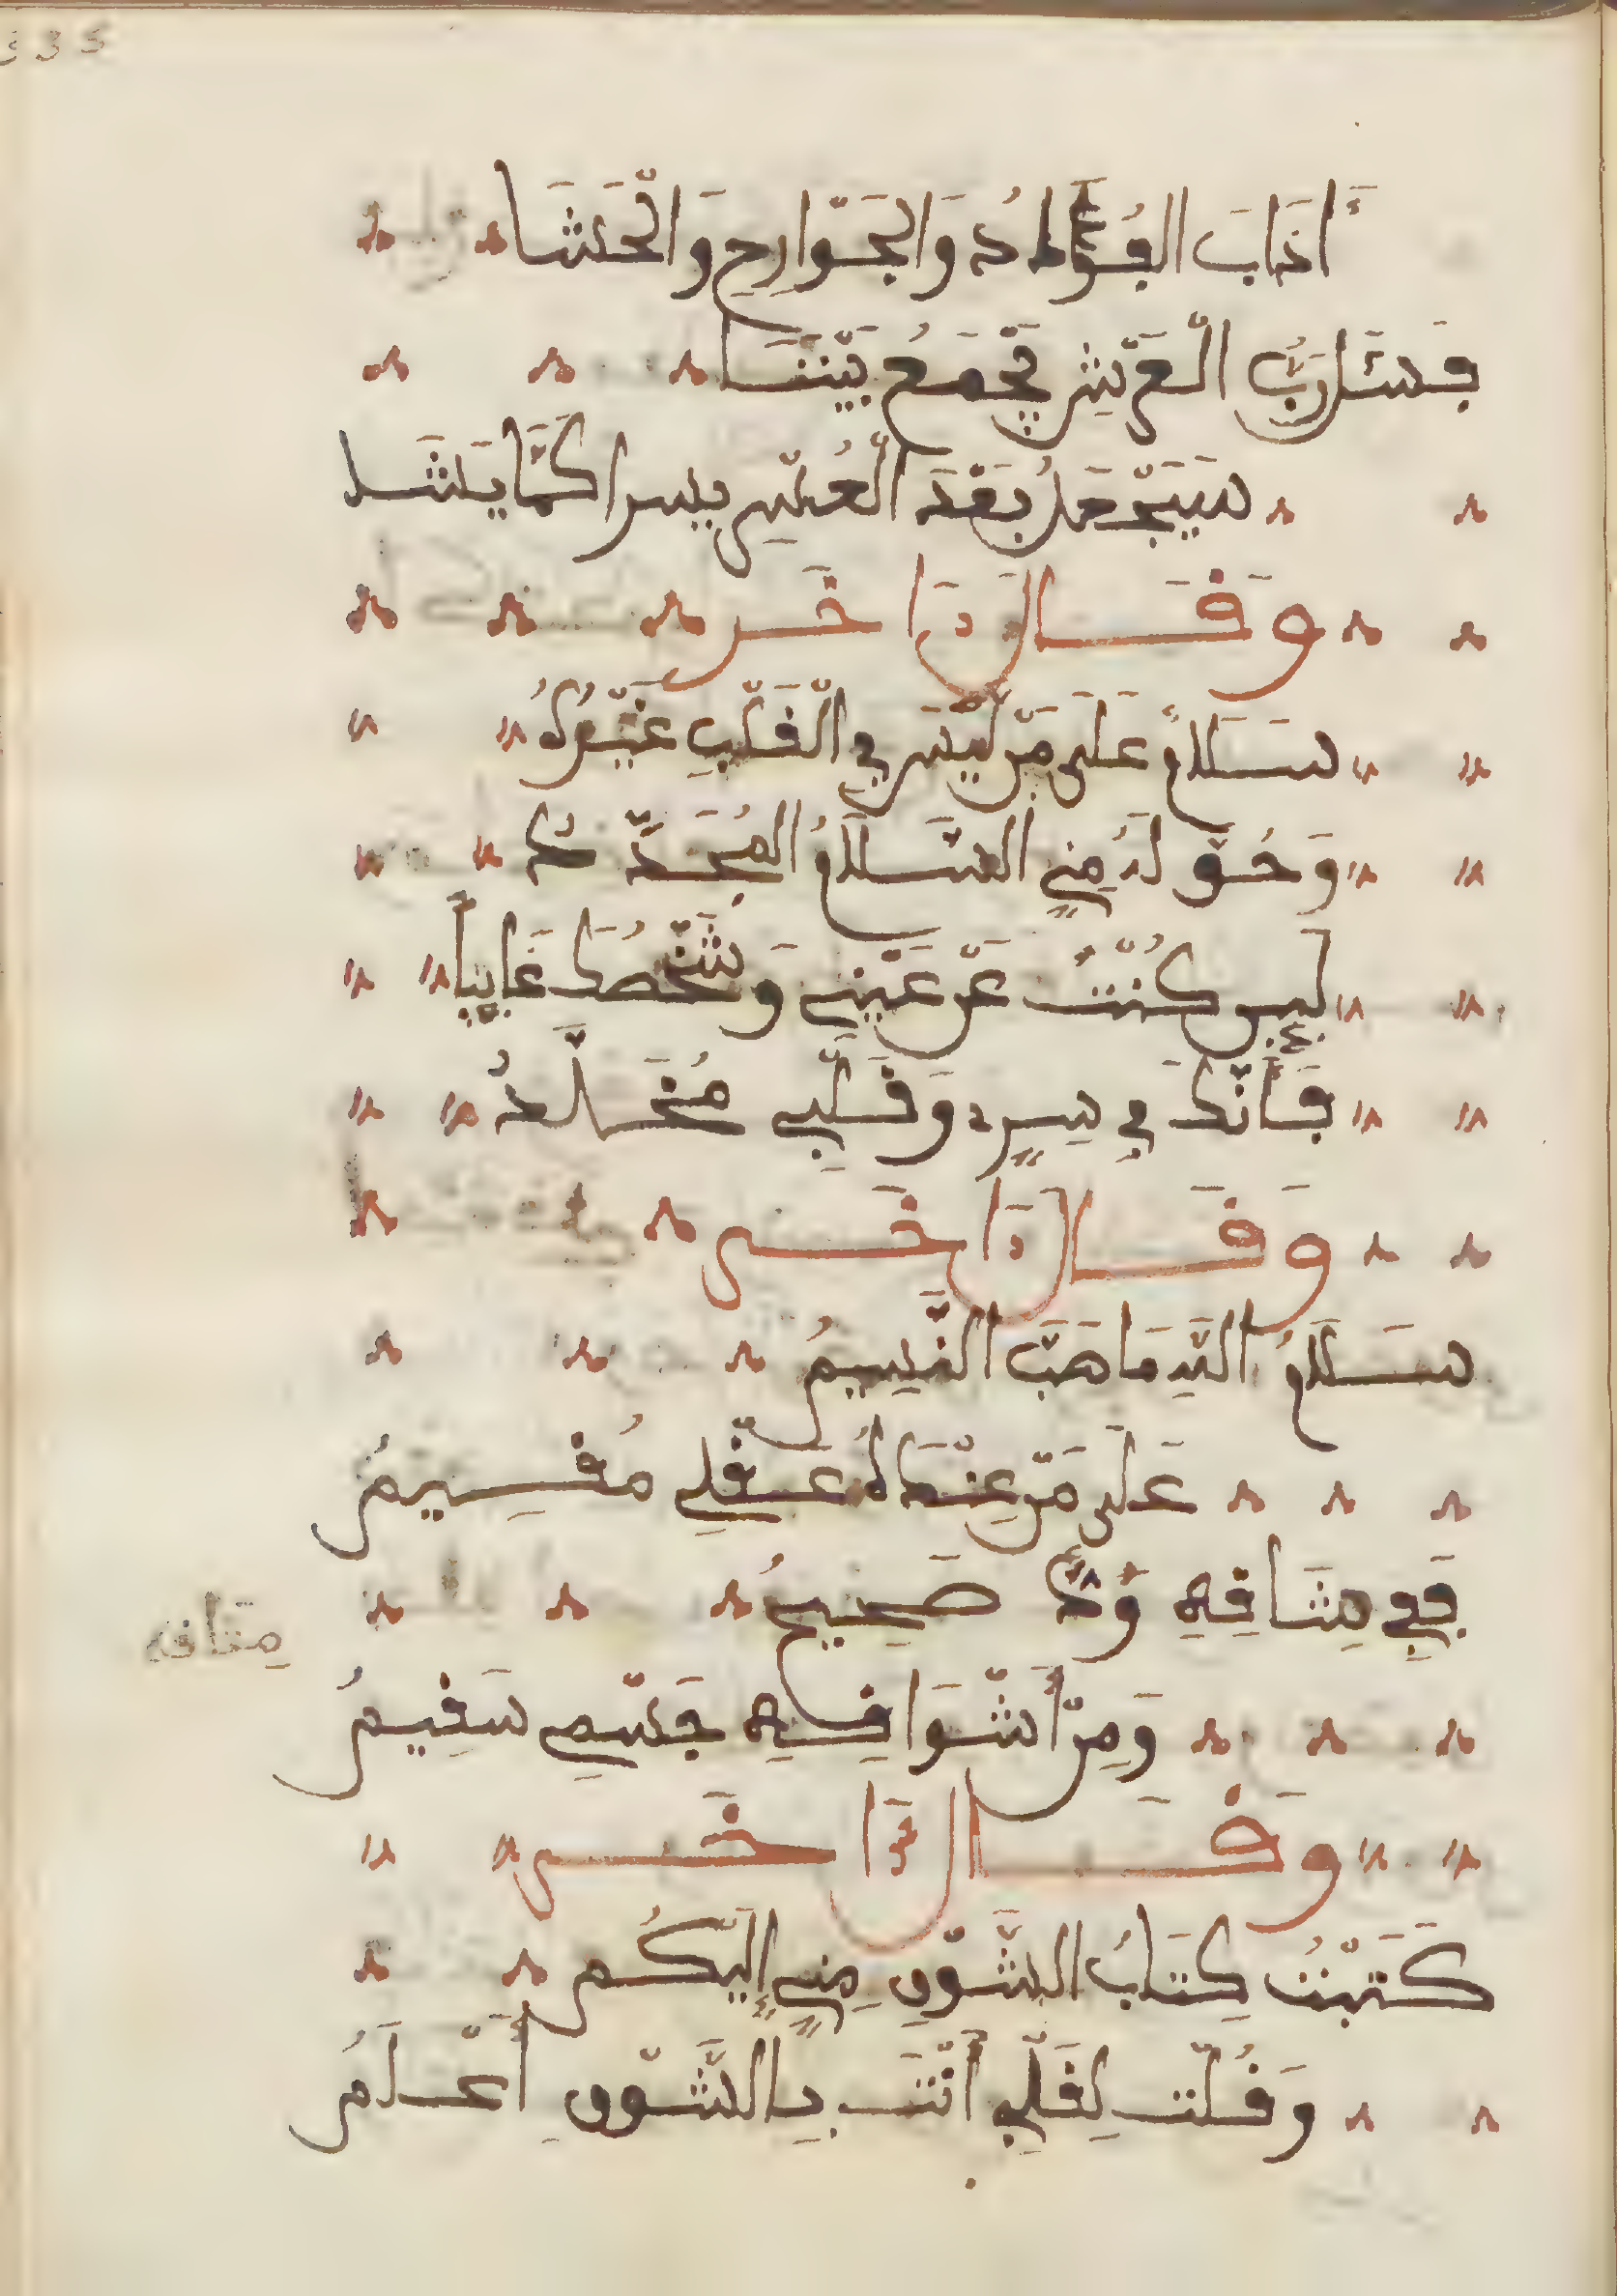 أَذَابَ الفُؤَادُ وَالْجَوَارِحِ وَالْحَشَا
فسئل رَبُّ الْعَرْشِ يَجْمَعُ بَيْنَنَا
سَيَجْعَلُ بَعْدَ الْعُسْرِ يسرا كَمَّا يَشَا
وَقَالَ ءَاخَر
سَلَامٌ عَلَى مَنْ لَيْسَ فِي الْقَلْبِ غَيْرُهُ
وَحُق لَهُ مِنِّي السَّلَامُ الْمُجَدَّدُ
لَئِن كُنْتُ عَنْ عَيْنِي وَشَخْصُكَ غَايِباً
فَأَنْكَ فِي سِرِّي وَقَلْبِي مُخَلَّدُ
وَقَالَ ءَاخَر
سَلَامُ اللَّهِ مَا هَبَّ النَّسِيمُ
عَلَى مَنْ عِنْدَهُ عَقْلِي مُقِيمُ
فَفِي مِثَافِهِ وُدٌّ صَحِيحُ
مثافه
وَمِنْ أَشْوَافِهِ جَسْمِي سَقِيمُ
وَقَالَ ءَاخَر
كَتَبْتُ كِتَابُ الشَّوْقِ مِنِّي إِلَيْكُم
وَقُلْت لِقَلْبِي أَنْتَ بِالشَّوْقِ أَعْلَمُ